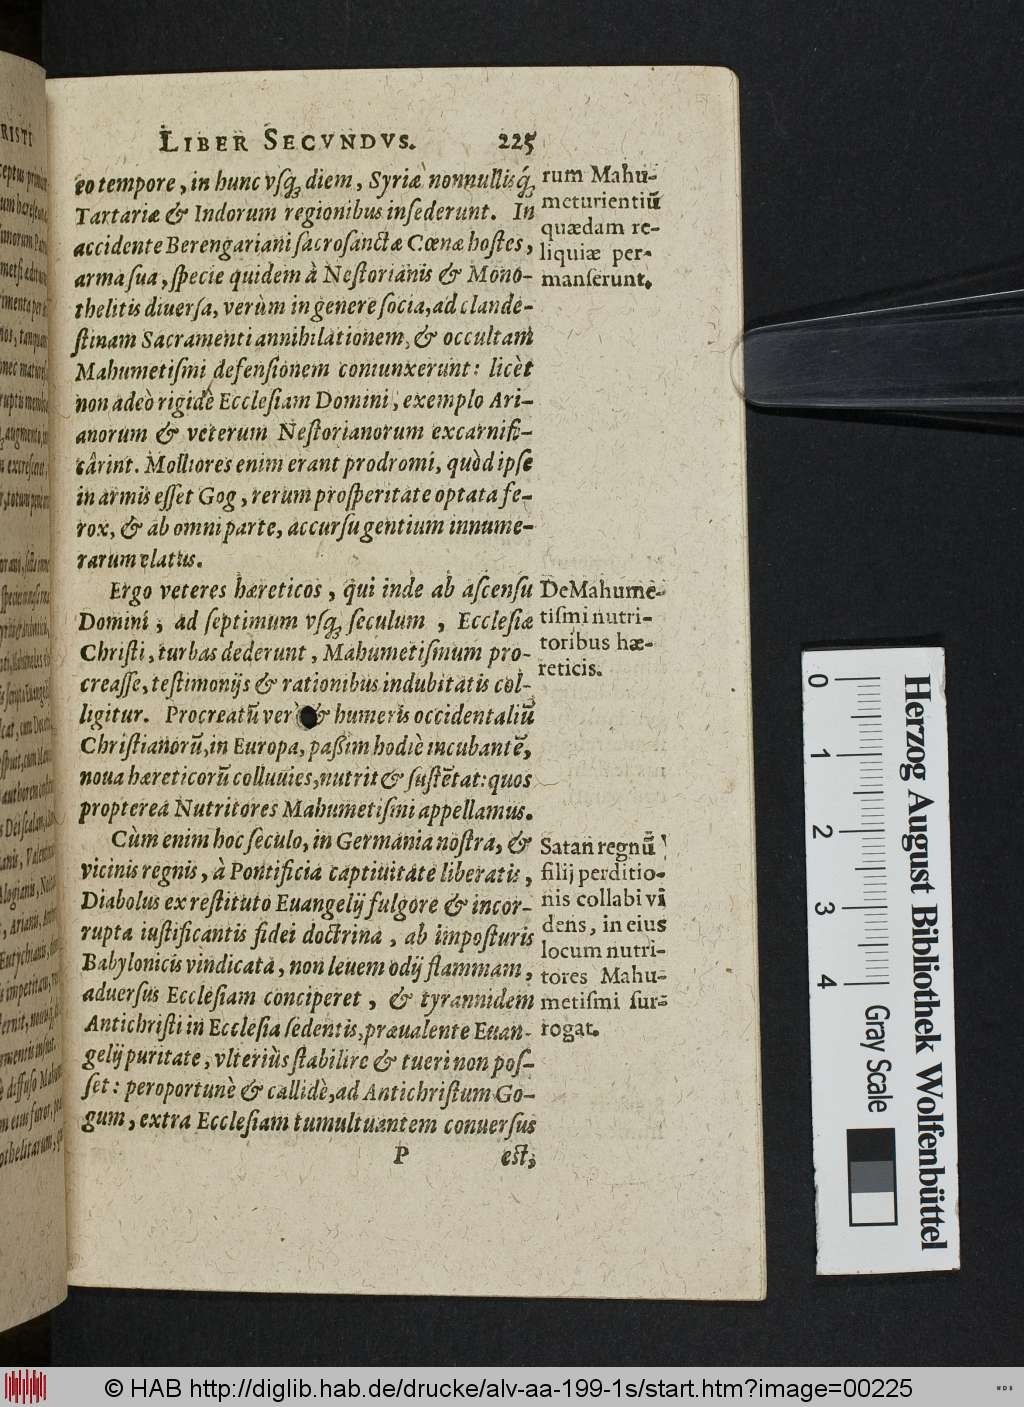 LIBER SECVNDVS. 225
eo tempore, in hunc vſq́ꝫ diem, Syriæ nonnullisq́ꝫ
Tartariæ & Indorum regionibus inſederunt. In
accidente Berengariani ſacroſanctæ Cœnæ hoſtes,
arma ſua, ſpecie quidem à Neſtorianis & Mono-
thelitis diuerſa, verùm in genere ſocia, ad clande-
ſtinam Sacramenti annihilationem, & occultam
Mahumetiſmi defenſionem coniunxerunt: licèt
non adeò rigidè Eccleſiam Domini, exemplo Ari-
anorum & veterum Neſtorianorum excarnifi-
cârint. Molliores enim erant prodromi, quòd ipſe
in armis eſſet Gog, rerum proſperitate optata fe-
rox, & ab omni parte, accurſu gentium innume-
rarum elatus.
rum Mahu-
meturientiũ
quædam re-
liquiæ per-
manſerunt.
Ergo veteres hæreticos, qui inde ab aſcenſu
Domini, ad ſeptimum vſq́ꝫ ſeculum, Eccleſiæ
Chriſti, turbas dederunt, Mahumetiſmum pro-
creaſſe, teſtimonijs & rationibus indubitatis col-
ligitur. Procreatũ verò & humeris occidentaliũ
Chriſtianorũ, in Europa, paßim hodiè incubantẽ,
noua hæreticorũ colluuies, nutrit & ſuſtẽtat: quos
propterea Nutritores Mahumetiſmi appellamus.
De Mahume-
tiſmi nutri-
toribus hæ-
reticis.
Cùm enim hoc ſeculo, in Germania noſtra, &
vicinis regnis, à Pontificia captiuitate liberatis,
Diabolus ex reſtituto Euangelij fulgore & incor-
rupta iuſtificantis fidei doctrina, ab impoſturis
Babylonicis vindicata, non leuem odij flammam,
aduerſus Eccleſiam conciperet, & tyrannidem
Antichriſti in Eccleſia ſedentis, præualente Euan-
gelij puritate, vlteriùs ſtabilire & tueri non poſ-
ſet: peroportunè & callidè, ad Antichriſtum Go-
gum, extra Eccleſiam tumultuantem conuerſus
Satan regnũ
filij perditio-
nis collabi vi
dens, in eius
locum nutri-
tores Mahu-
metiſmi ſur-
rogat.
P est,
0 1 2 3 4
Gray Scale
Herzog August Bibliothek Wolfenbüttel
© HAB http://diglib.hab.de/drucke/alv-aa-199-1s/start.htm?image=00225